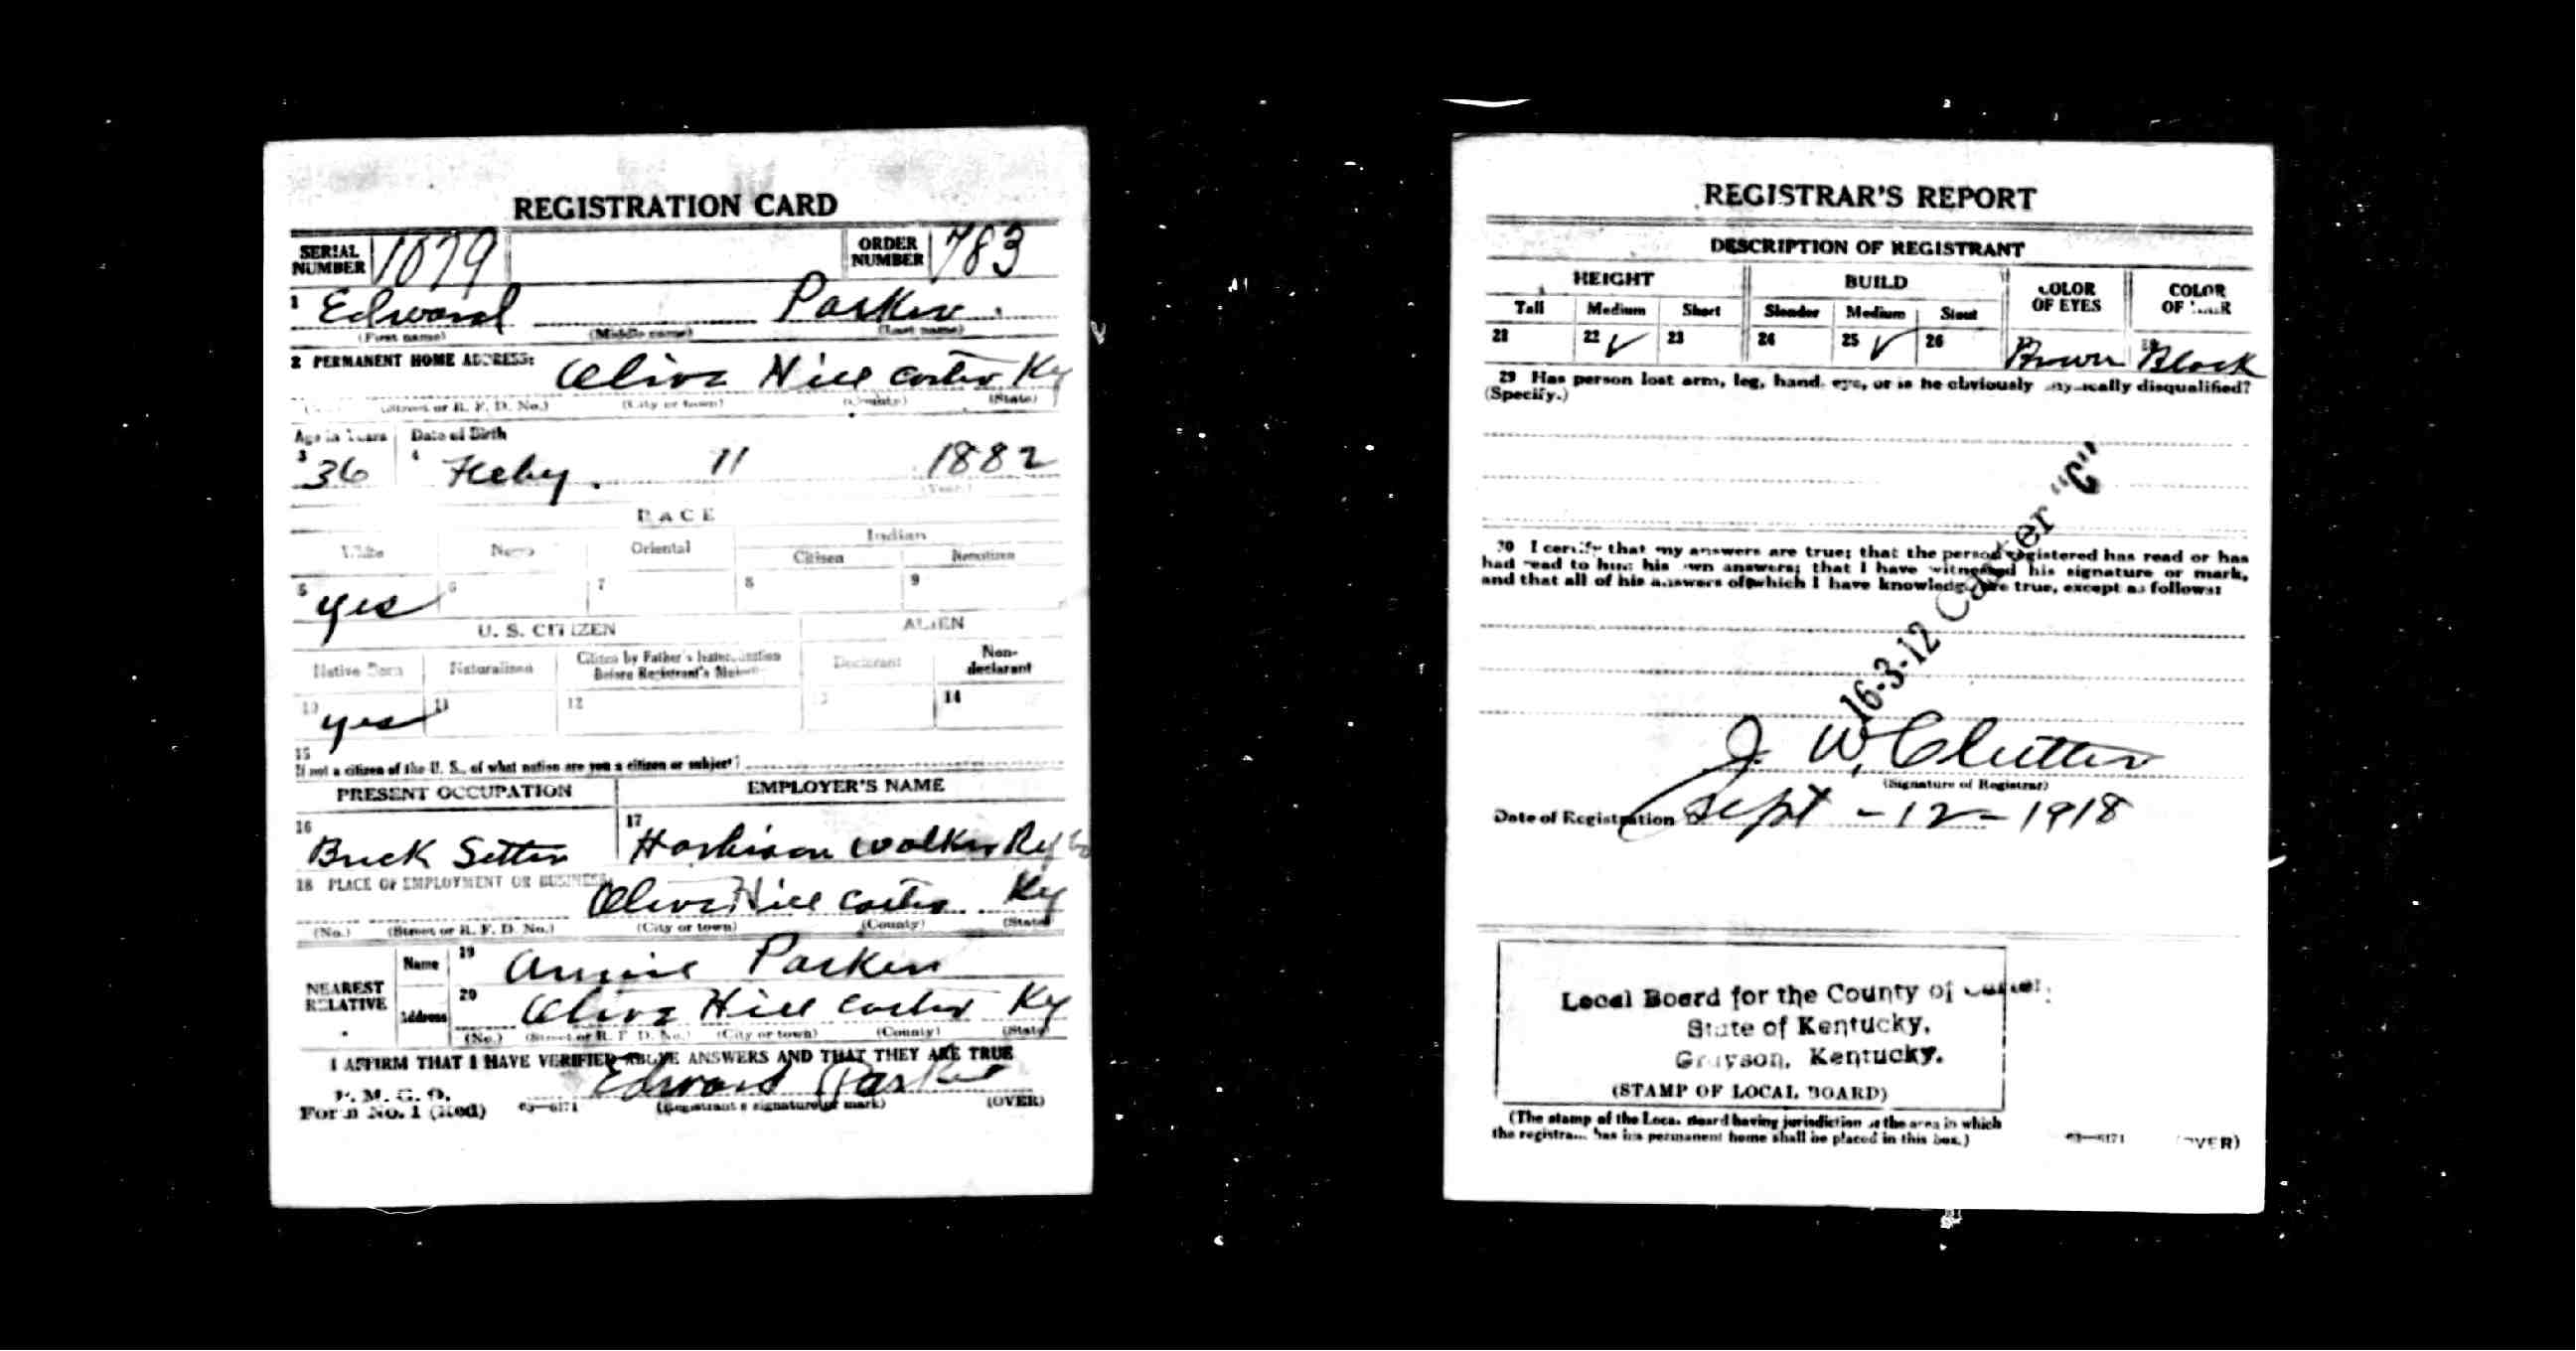 REGISTRATION CARD
SERIAL NUMBER 1079 ORDER NUMBER 783
1 Edward Parker
(First name) (Middle name) (Last name)
2 PERMANENT HOME ADDRESS: Olive Hill Carter Ky
(Street or R. F. D. No.) (City or town) (County) (State)
Age in Years Date of Birth
3 36 4 Feby. 11 1882
(Year)
RACE
White Negro Oriental Indian
Citizen Noncitizen
5 yes 6 7 8 9
U. S. CITIZEN ALIEN
Native Born Naturalized Citizen by Father's Naturalization Before Registrant's Majority Declarant Non-declarant
10 yes 11 12 13 14
15
If not a citizen of the U. S., of what nation are you a citizen or subject?
PRESENT OCCUPATION EMPLOYER'S NAME
16 Brick Setter 17 Harbison Walker Ref Co
18 PLACE OF EMPLOYMENT OR BUSINESS:
Olive Hill Carter Ky
(No.) (Street or R. F. D. No.) (City or town) (County) (State)
NEAREST RELATIVE
Name 19 Annie Parker
Address 20 Olive Hill Carter Ky
(No.) (Street or R. F. D. No.) (City or town) (County) (State)
I AFFIRM THAT I HAVE VERIFIED ABOVE ANSWERS AND THAT THEY ARE TRUE
P. M. G. O.
Form No. 1 (Red) 03—6171 Edward Parker
(Registrant's signature or mark) (OVER)
REGISTRAR'S REPORT
DESCRIPTION OF REGISTRANT
HEIGHT BUILD COLOR OF EYES COLOR OF HAIR
Tall Medium Short Slender Medium Stout
21 22 ✓ 23 24 25 ✓ 26 Brown Black
29 Has person lost arm, leg, hand, eye, or is he obviously physically disqualified?
(Specify.)
30 I certify that my answers are true; that the person registered has read or has
had read to him his own answers; that I have witnessed his signature or mark,
and that all of his answers of which I have knowledge are true, except as follows:
16-3-12 Carter "C"
J. W. Clutter
(Signature of Registrar)
Date of Registration Sept - 12 - 1918
Local Board for the County of Carter,
State of Kentucky,
Grayson, Kentucky.
(STAMP OF LOCAL BOARD)
(The stamp of the Local Board having jurisdiction of the area in which
the registrant has his permanent home shall be placed in this box.)
03—6171 (OVER)